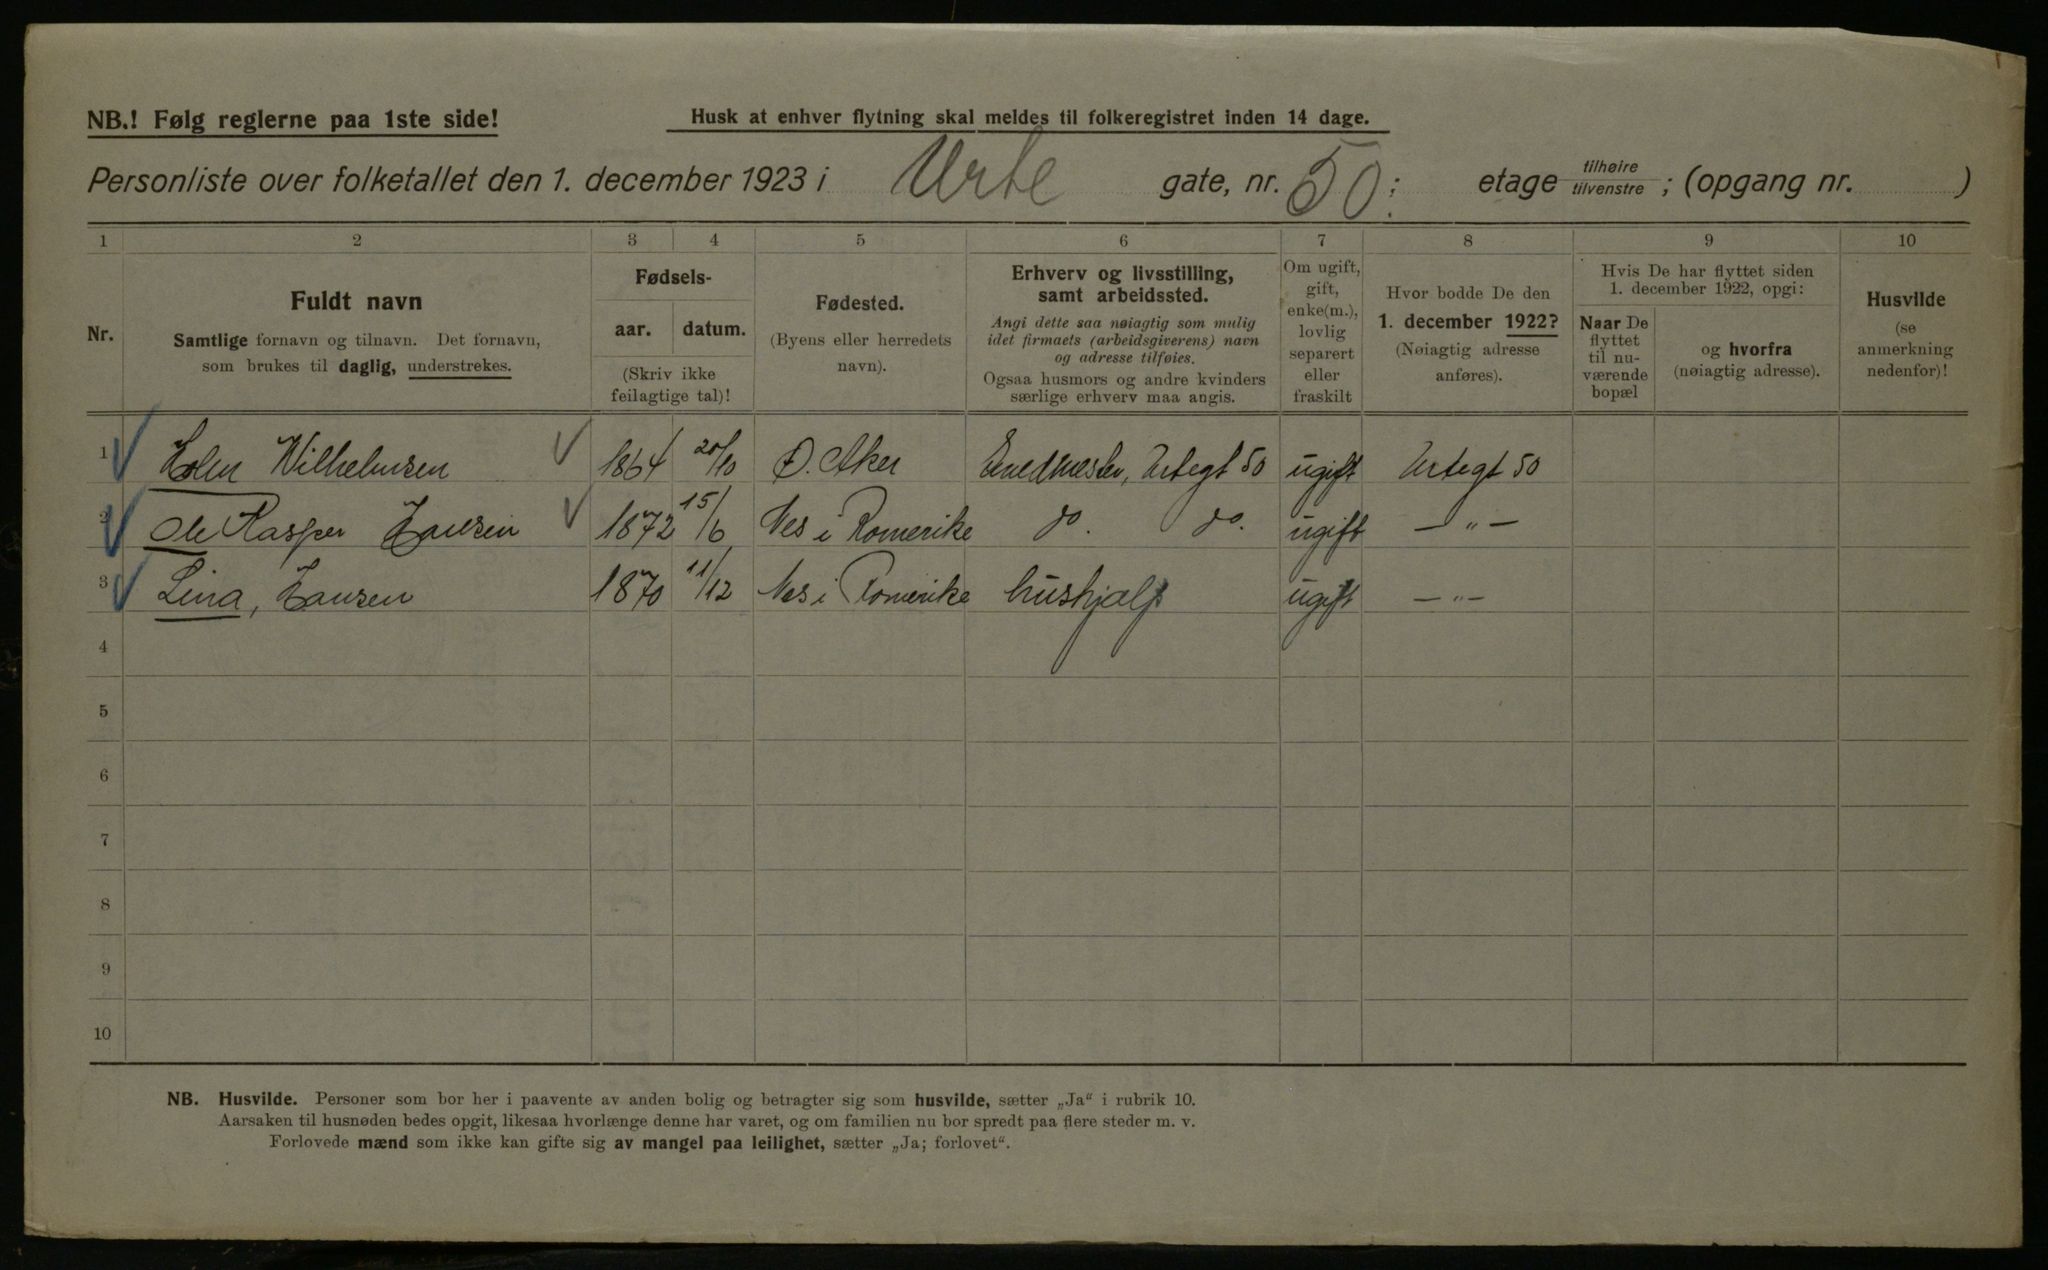 NB.! Følg reglerne paa 1ste side!
Husk at enhver flytning skal meldes til folkeregistret inden 14 dage.
Personliste over folketallet den 1. december 1923 i Urte gate, nr. 50; etage tilhøire tilvenstre ; (opgang nr. )
1 2 3 4 5 6 7 8 9 10
Nr.
Fuldt navn
Samtlige fornavn og tilnavn. Det fornavn,
som brukes til daglig, understrekes.
Fødsels-
aar. datum.
(Skriv ikke
feilagtige tal)!
Fødested.
(Byens eller herredets
navn).
Erhverv og livsstilling,
samt arbeidssted.
Angi dette saa nøiagtig som mulig
idet firmaets (arbeidsgiverens) navn
og adresse tilføies.
Ogsaa husmors og andre kvinders
særlige erhverv maa angis.
Om ugift,
gift,
enke(m.),
lovlig
separert
eller
fraskilt
Hvor bodde De den
1. december 1922?
(Nøiagtig adresse
anføres).
Hvis De har flyttet siden
1. december 1922, opgi:
Naar De
flyttet
til nu-
værende
bopæl
og hvorfra
(nøiagtig adresse).
Husvilde
(se
anmerkning
nedenfor)!
1 Wilhelmsen 1864 20/10 Ø. Aker Urtegt 50 ugift Urtegt 50
2 Ole Kasper Hansen 1872 15/6 Nes i Romerike do. do. ugift — " —
3 Lina, Hansen 1870 11/12 Nes i Romerike hushjælp ugift — " —
4
5
6
7
8
9
10
NB. Husvilde. Personer som bor her i paavente av anden bolig og betragter sig som husvilde, sætter „Ja“ i rubrik 10.
Aarsaken til husnøden bedes opgit, likesaa hvorlænge denne har varet, og om familien nu bor spredt paa flere steder m. v.
Forlovede mænd som ikke kan gifte sig av mangel paa leilighet, sætter „Ja; forlovet“.